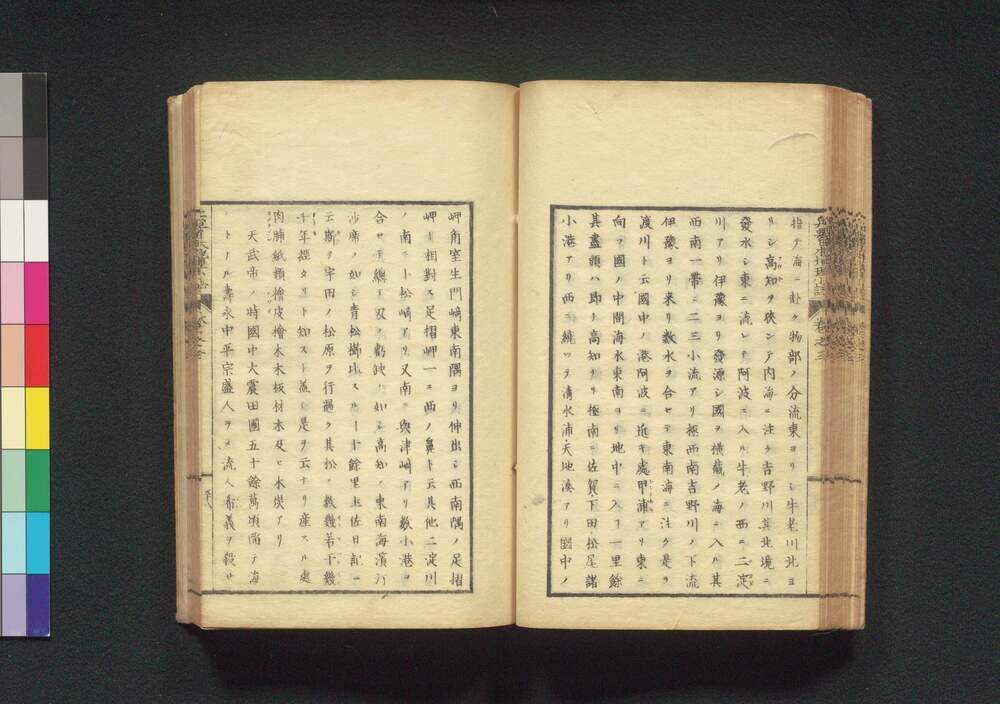 指テ海ニ赴ク物部ノ分流東ヨリシ牛老川北ヨ
リシ高知ヲ狹ンテ内海ニ注ク吉野川其北境ニ
發水シ東ニ流レテ阿波ニ入ル牛老ノ西ニ二淀
川アリ伊豫ヨリ發源シ國ヲ横截ノ海ニ入ル其
西南一帶ニ二三小流アリ極西南吉野川ノ下流
伊豫ヨリ來リ數水ヲ合セテ東南海ニ注ク是ヲ
渡川ト云國中ノ港阿波ニ近キ處甲浦アリ東ニ
向フ國ノ中間海水東南ヨリ地中ニ入ヿ一里餘
其盡頭ハ即チ高知ナリ極南ニ佐賀下田松尾諸
小港アリ西ニ繞ツテ清水浦天地湊アリ國中ノ
岬角室生門﨑東南隅ヨリ伸出シ西南隅ノ足摺
岬ト相對ス足摺岬一ニ西ノ鼻ト云其他二淀川
ノ南ニ小松﨑アリ又南ニ與津﨑アリ數小港ヲ
合セテ總テ刄ノ齾缺ノ如シ高知ノ東南海濱
沙席ノ如シ青松樹比スルヿ十餘里土佐日記ニ
云斯テ宇田ノ松原ヲ行過ク其松ノ數幾若干幾
千年經タリト知スト蓋シ是ヲ云ナリ産スル處
肉脯紙類檜皮檜木木板材木及ヒ木炭アリ
天武帝ノ時國中大震田圃五十餘萬頃陥テ海
トナル壽永中平宗盛人ヲ〆流人希義ヲ殺サ
卷之三